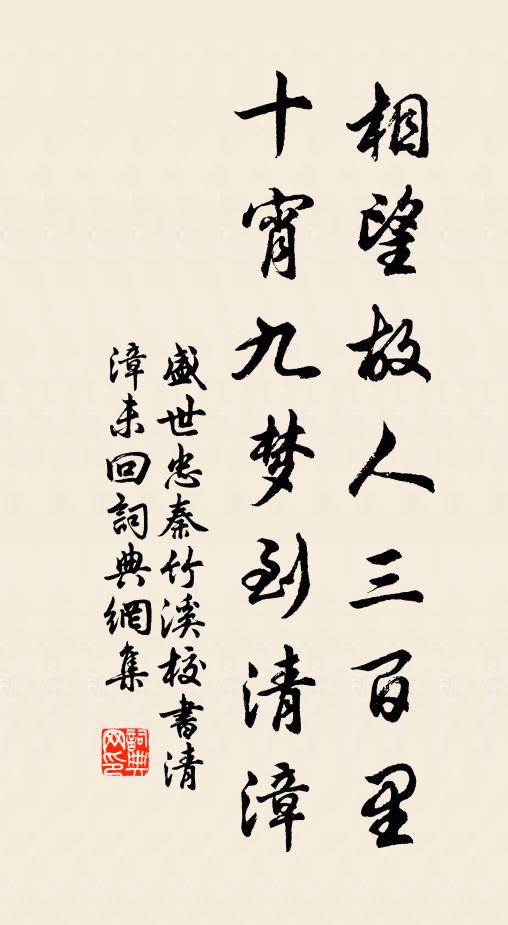 相望故人三百里
十宵九梦到清漳
盛世忠秦竹溪校書清
漳未回詞典網集
詞典
网印